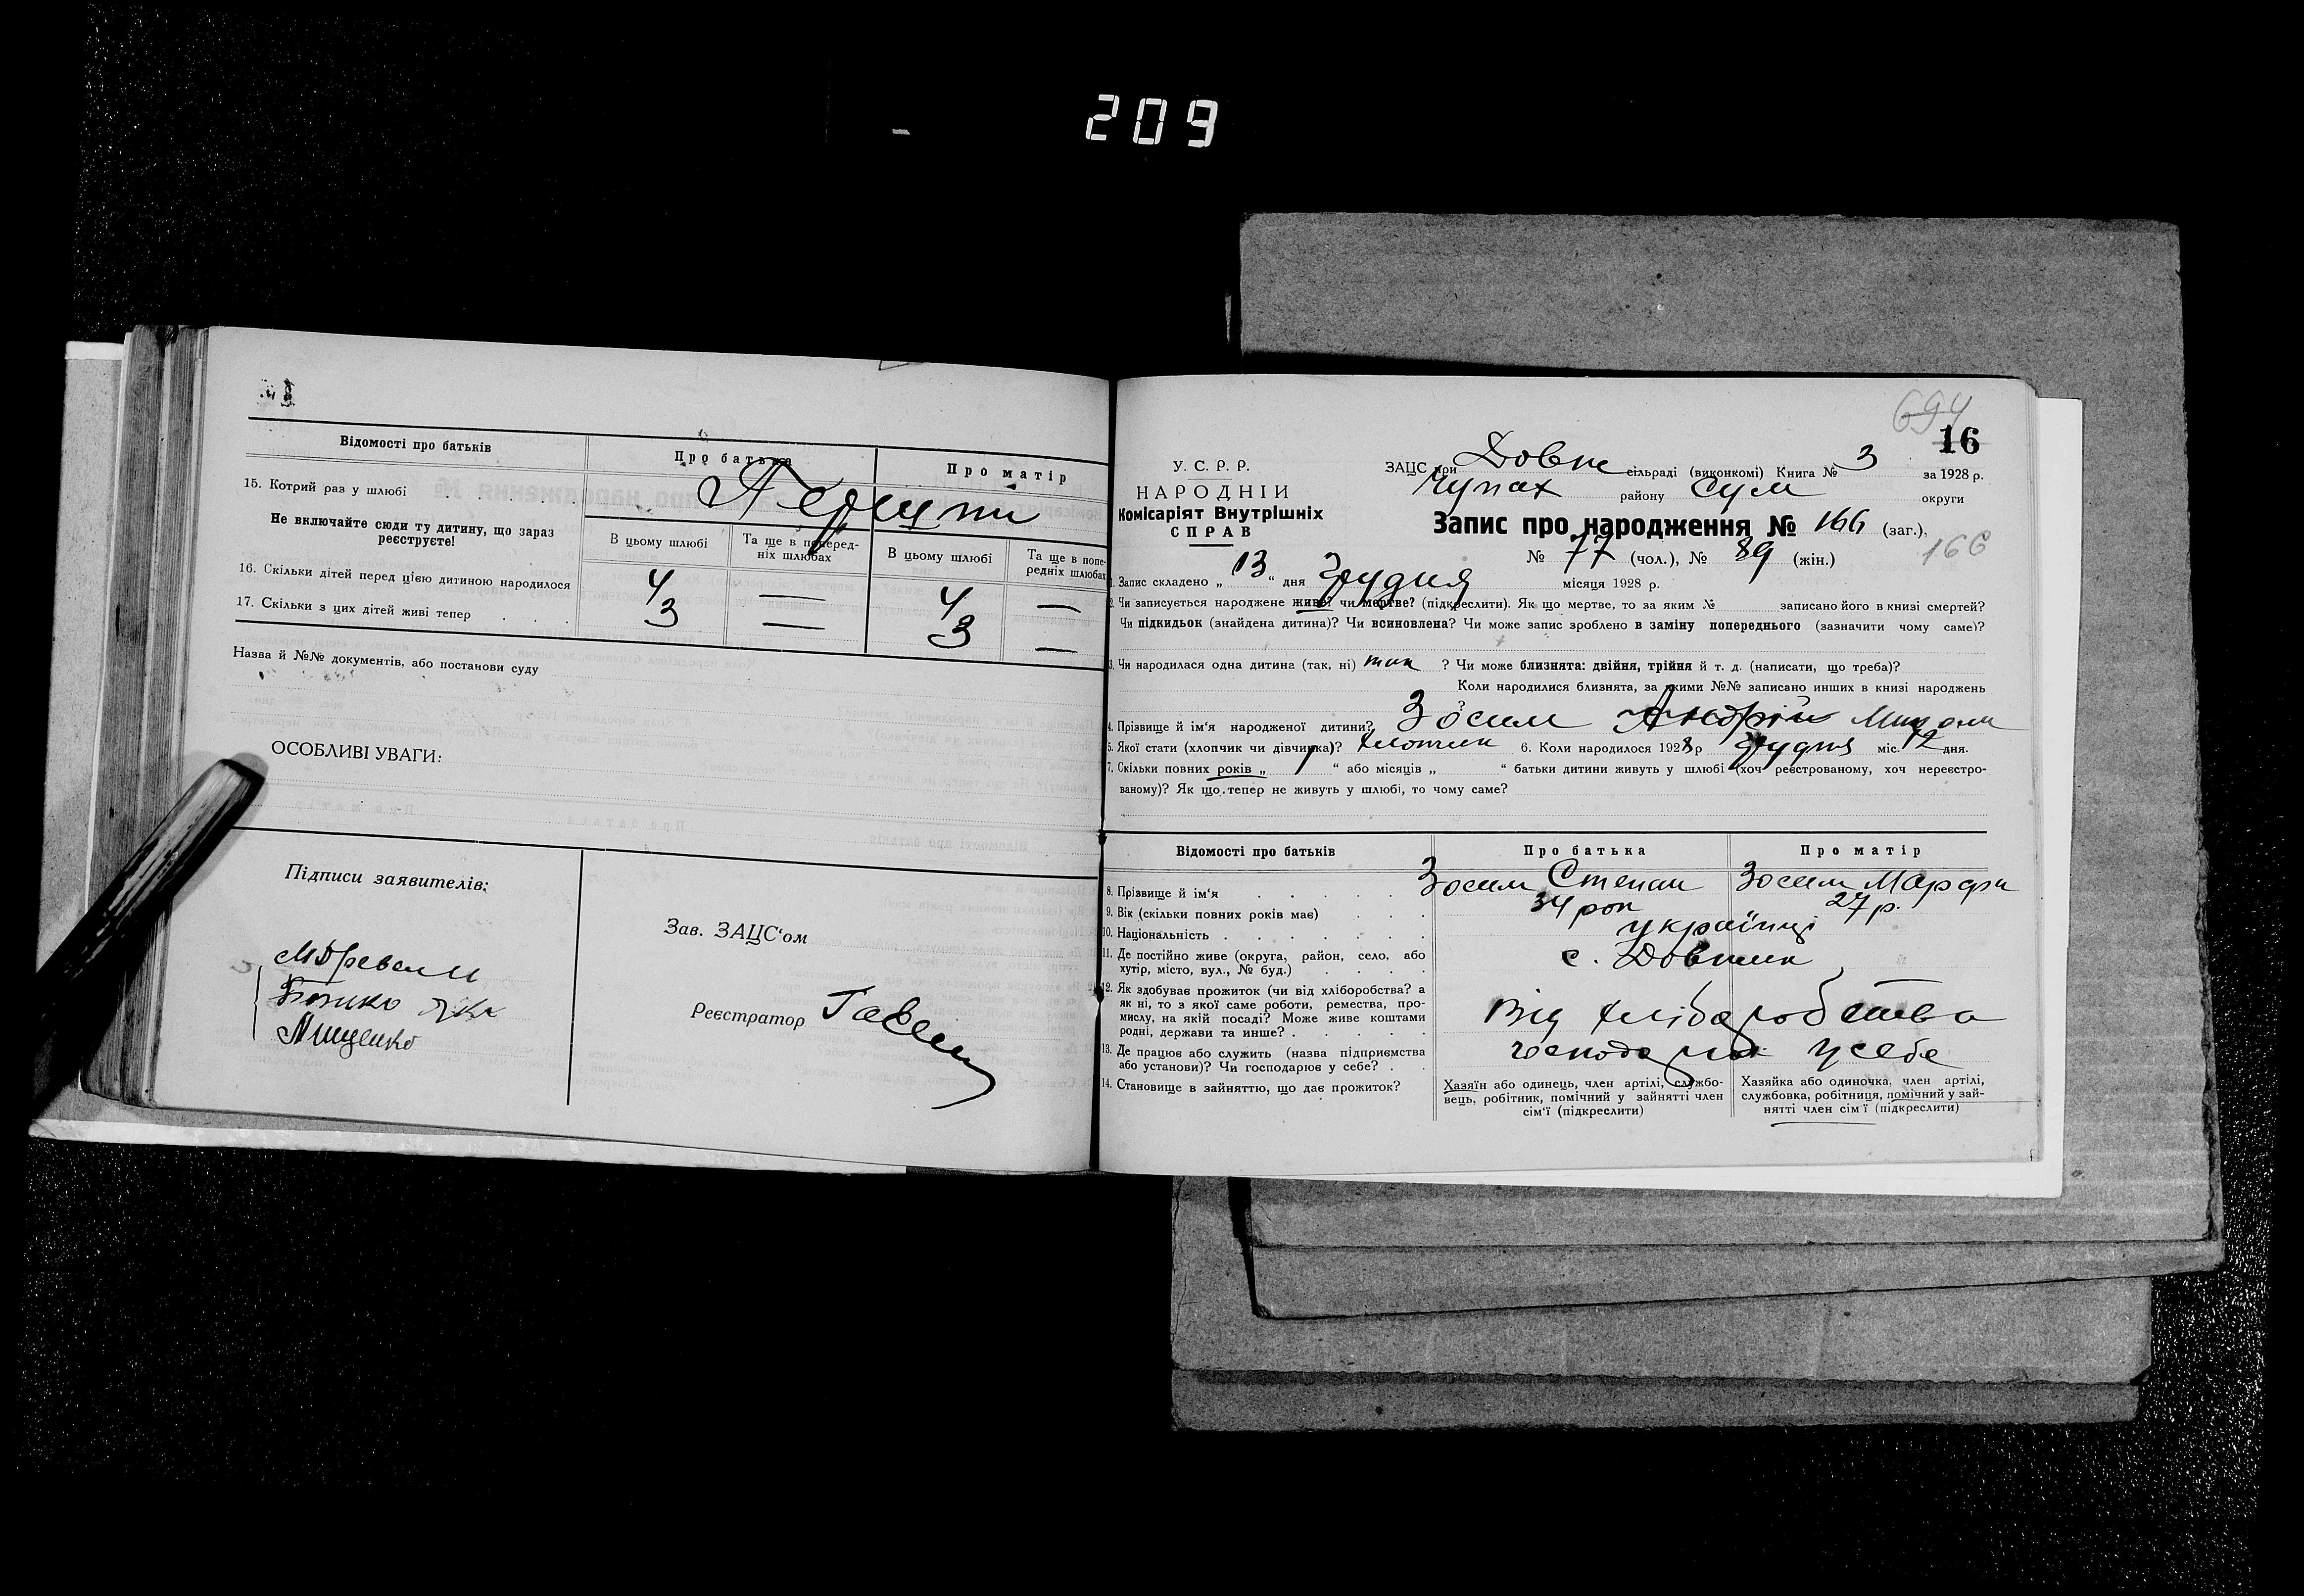 209
Відомості про батьків
Про батька
Про матір
15. Котрий раз у шлюбі . . .
Не включайте сюди ту дитину, що зараз
реєструєте!
В цьому шлюбі
Та ще в поперед-
ніх шлюбах
В цьому шлюбі
Та ще в попе-
редніх шлюбах
16. Скільки дітей перед цією дитиною народилося
4 — 4 —
17. Скільки з цих дітей живі тепер . . .
3 — 3 —
Назва й №№ документів, або постанови суду
ОСОБЛИВІ УВАГИ:
Підписи заявителів:
Мищенко
Зав. ЗАЦС'ом
Реєстратор
694
16
У. С. Р. Р.
НАРОДНІЙ
Комісаріят Внутрішніх
СПРАВ
ЗАЦС при Довж сільраді (виконкомі) Книга № 3 за 1928 р.
Чупах району Сум округи
Запис про народження № 166 (заг.),
№ 77 (чол.), № 89 (жін.)
166
1. Запис складено „ 13 “ дня Грудня місяця 1928 р.
2. Чи записується народжене живе? чи мертве? (підкреслити). Як що мертве, то за яким № записано його в книзі смертей?
Чи підкидьок (знайдена дитина)? Чи всиновлена? Чи може запис зроблено в заміну попереднього (зазначити чому саме)?
3. Чи народилася одна дитина (так, ні) так ? Чи може близнята: двійня, трійня й т. д. (написати, що треба)?
Коли народилися близнята, за якими №№ записано инших в книзі народжень
4. Прізвище й ім'я народженої дитини? Зосим Андрій Микола
5. Якої стати (хлопчик чи дівчинка)? хлопчик 6. Коли народилося 1928 р Грудня міс. 12 дня.
7. Скільки повних років „ “ або місяців „ “ батьки дитини живуть у шлюбі (хоч реєстрованому, хоч нереєстро-
ваному)? Як що тепер не живуть у шлюбі, то чому саме?
Відомості про батьків
Про батька
Про матір
8. Прізвище й ім'я . . . . . Зосим Степан Зосим Марфа
9. Вік (скільки повних років має) . . . 34 рок 27 р.
10. Національність . . . . . . . українці
11. Де постійно живе (округа, район, село, або
хутір, місто, вул., № буд.) . . . .
с. Довжик
12. Як здобуває прожиток (чи від хліборобства? а
як ні, то з якої саме роботи, ремества, про-
мислу, на якій посаді? Може живе коштами
родні, держави та инше? . . . . .
Від хліборобства
13. Де працює або служить (назва підприємства
або установи)? Чи господарює у себе? . .
господарює у себе
14. Становище в зайняттю, що дає прожиток?
Хазяїн або одинець, член артілі, службо-
вець, робітник, помічний у зайнятті член
сім'ї (підкреслити)
Хазяйка або одиночка, член артілі,
службовка, робітниця, помічний у зай-
нятті член сім'ї (підкреслити)